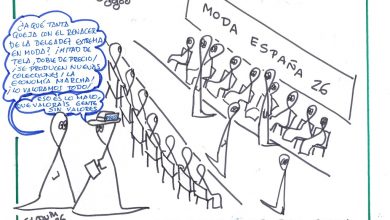 ¿A QUÉ TANTA
QUEJA CON EL RENACER
DE LA DELGADEZ EXTREMA
EN MODA? ¡MITAD DE
TELA, DOBLE DE PRECIO!
¡SE PRODUCEN NUEVAS
COLECCIONES! ¡LA
ECONOMÍA MARCHA!
¡LO VALORAMOS TODO!
ESO ES LO MALO,
QUE VALORÁIS GENTE
SIN VALORES
MODA ESPAÑA 26